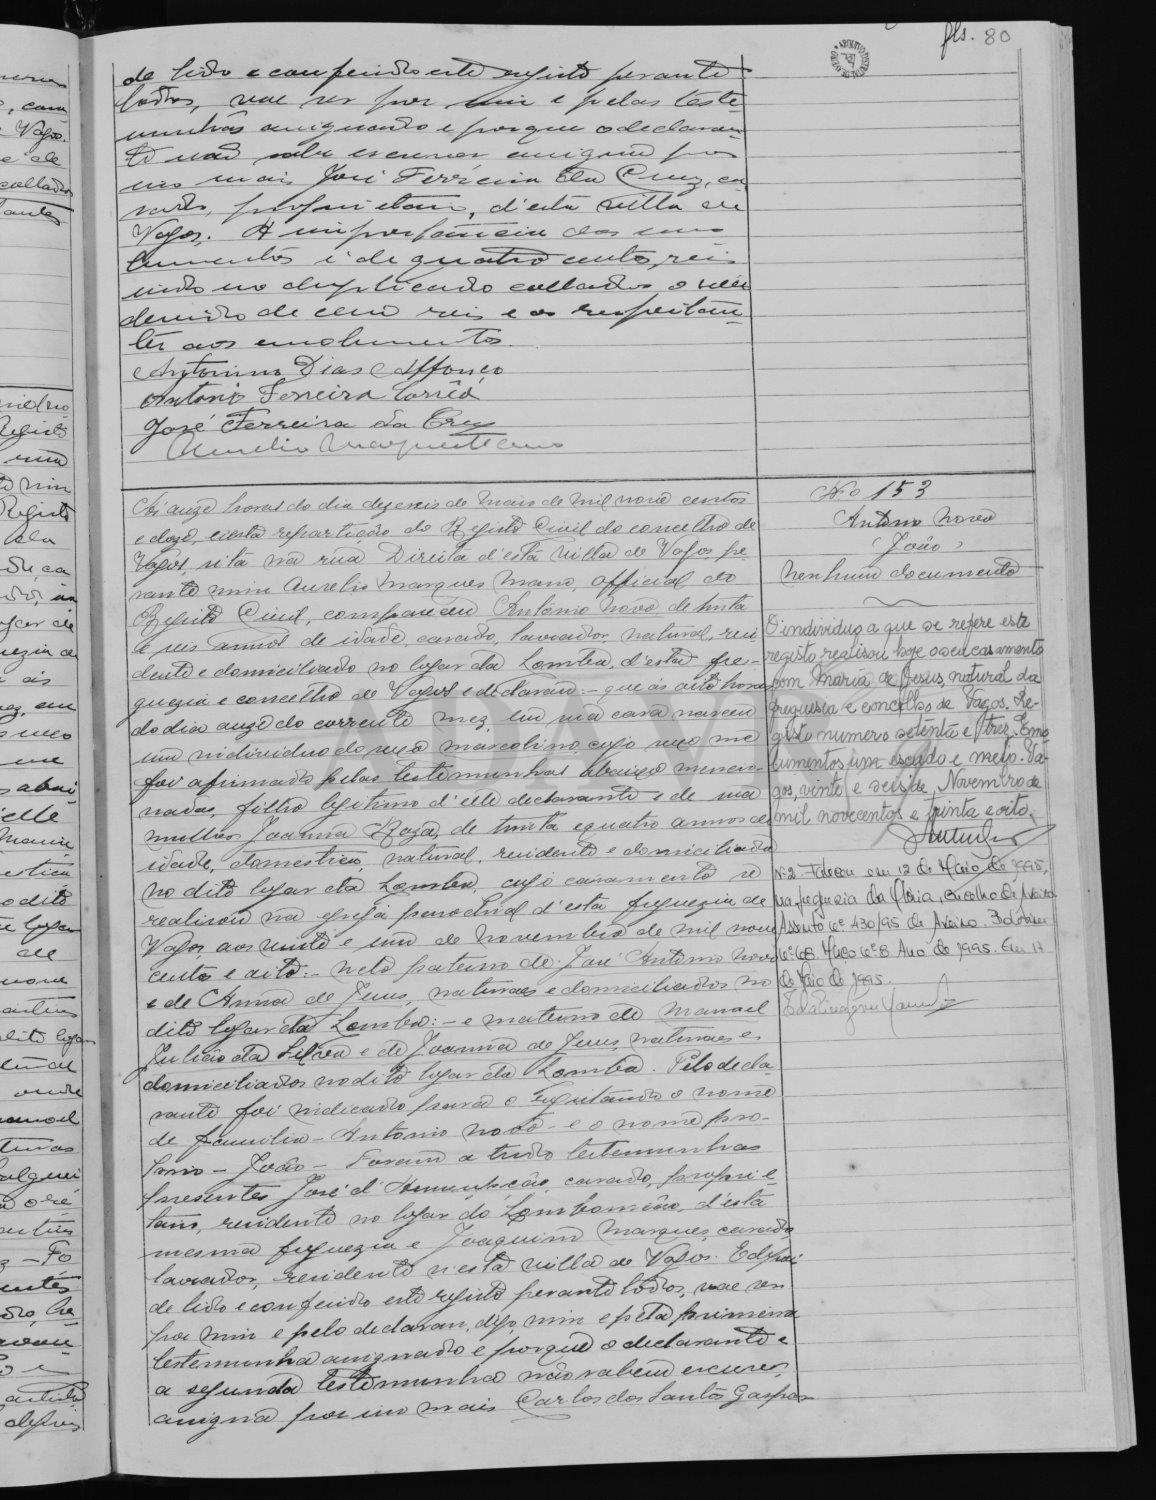 fls. 80
de lido e conferido este registo perante
todos, vae ser por mim e pelas teste
munhas assignado e porque o declaran
te não sabe escrever assigna por
seu mais José Ferreira da Cruz, ca
sado, proprietario, d'esta villa de
Vagos. A importancia dos emo
lumentos é de quatro centos reis
sendo no duplicado collados o sello
devido de cem reis e os respeitan
tes aos emolumentos.
Antonino Dias Affonço
Antonio Ferreira Corrêa
José Ferreira da Cruz
Aurelio Marques Mano
Nº 153
Antonio Novo
(João)
Nenhum documento
Ás onze horas do dia dezeseis de Maio de mil nove centos
e doze, n'esta repartição do Registo Civil do concelho de
Vagos, sita na rua Direita d'esta villa de Vagos pe
rante mim Aurelio Marques Mano, official do
Registo Civil, compareceu Antonio Novo de trinta
e seis annos de idade, casado, lavrador, natural, resi
dente e domiciliado no logar da Lomba, d'esta fre-
guezia e concelho de Vagos e declarou: - que ás oito horas
do dia onze do corrente mez, em sua casa nasceu
um individuo do sexo masculino, cujo sexo me
foi afirmado pelas testemunhas abaixo mencio-
nadas, filho legitimo d'elle declarante e de sua
mulher Joanna Roza, de trinta e quatro annos de
idade, domestica, natural, residente e domiciliada
no dito logar da Lomba, cujo casamento se
realisou na egreja parochial d'esta freguezia de
Vagos, aos vinte e um de Novembro de mil nove
centos e oito: - Neto paterno de José Antonio Novo
e de Anna de Jesus, naturaes e domiciliados no
dito logar da Lomba: - e materno de Manoel
Julião da Silva e de Joanna de Jesus, naturaes e
domiciliados no dito logar da Lomba. Pelo decla
rante foi indicado para o registando o nome
de familia - Antonio Novo - e o nome pro-
prio - João - Foram a tudo testemunhas
presentes José d'Annunciação, casado, proprie
tario, residente no logar do Lombomeão, d'esta
mesma freguezia e Joaquim Marques, casado,
lavrador, residente n'esta villa de Vagos. E depois
de lido e conferido este registo perante todos, vae ser
por mim e pelo declaran, digo, mim e pela primeira
testemunha assignado e porque o declarante e
a segunda testemunha não sabem escrever,
assigna por seu mais Carlos dos Santos Gaspar
O individuo a que se refere este
registo realisou hoje o seu casamento
com Maria de Jesus, natural da
freguesia e concelho de Vagos. Re-
gisto numero setenta e trez. Emo
lumentos um escudo e meio. Va-
gos, vinte e seis de Novembro de
mil novecentos e trinta e oito.
Nº 2 - Faleceu em 12 de Maio de 1995,
na freguesia da Glória, Concelho de Aveiro.
Assento nº 430/95 de Aveiro. Boletim
nº 68 Maço nº 8 Ano de 1995. Em 17
de Maio de 1995.
ADAVR